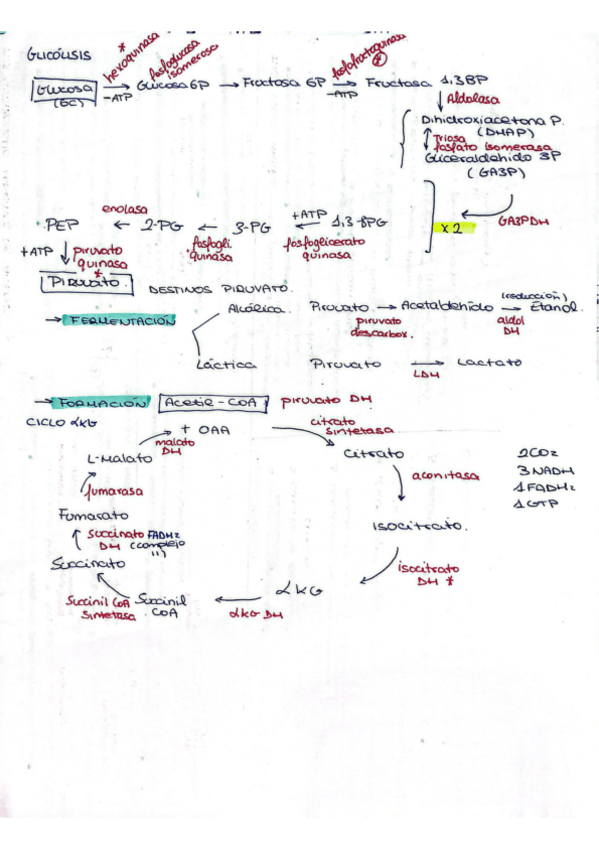 GLICÓLISIS
* hexoquinasa
fosfoglucosa isomerosa
fosfofructoquinasa *
Glucosa → Glucosa 6P → Fructosa 6P → Fructosa 1,3BP
(6C) -ATP -ATP
Aldolasa
Dihidroxiacetona P.
(DHAP)
Triosa
fosfato isomerasa
Gliceraldehido 3P
(GA3P)
GA3PDH
x2
enolasa
PEP ← 2-PG ← 3-PG ← 1,3-BPG
+ATP
fosfogli. quinasa
fosfoglicerato quinasa
+ATP piruvato quinasa *
Piruvato.
DESTINOS PIRUVATO.
→ FERMENTACIÓN
Alcólica. Piruvato → Acetaldehido → Etanol.
(reducción)
piruvato descarbox.
aldol DH
Láctica Piruvato → Lactato
LDH
→ FORMACIÓN Acetil-CoA piruvato DH
CICLO αKG
+ OAA
citrato sintetasa
malato DH
L-Malato
Citrato
2CO2
3NADH
1FADH2
1GTP
aconitasa
fumarasa
Fumarato
Isocitrato.
succinato FADH2
DH (complejo II)
isocitrato DH *
Succinato
αKG
Succinil CoA sintetasa
Succinil CoA
αKG DH